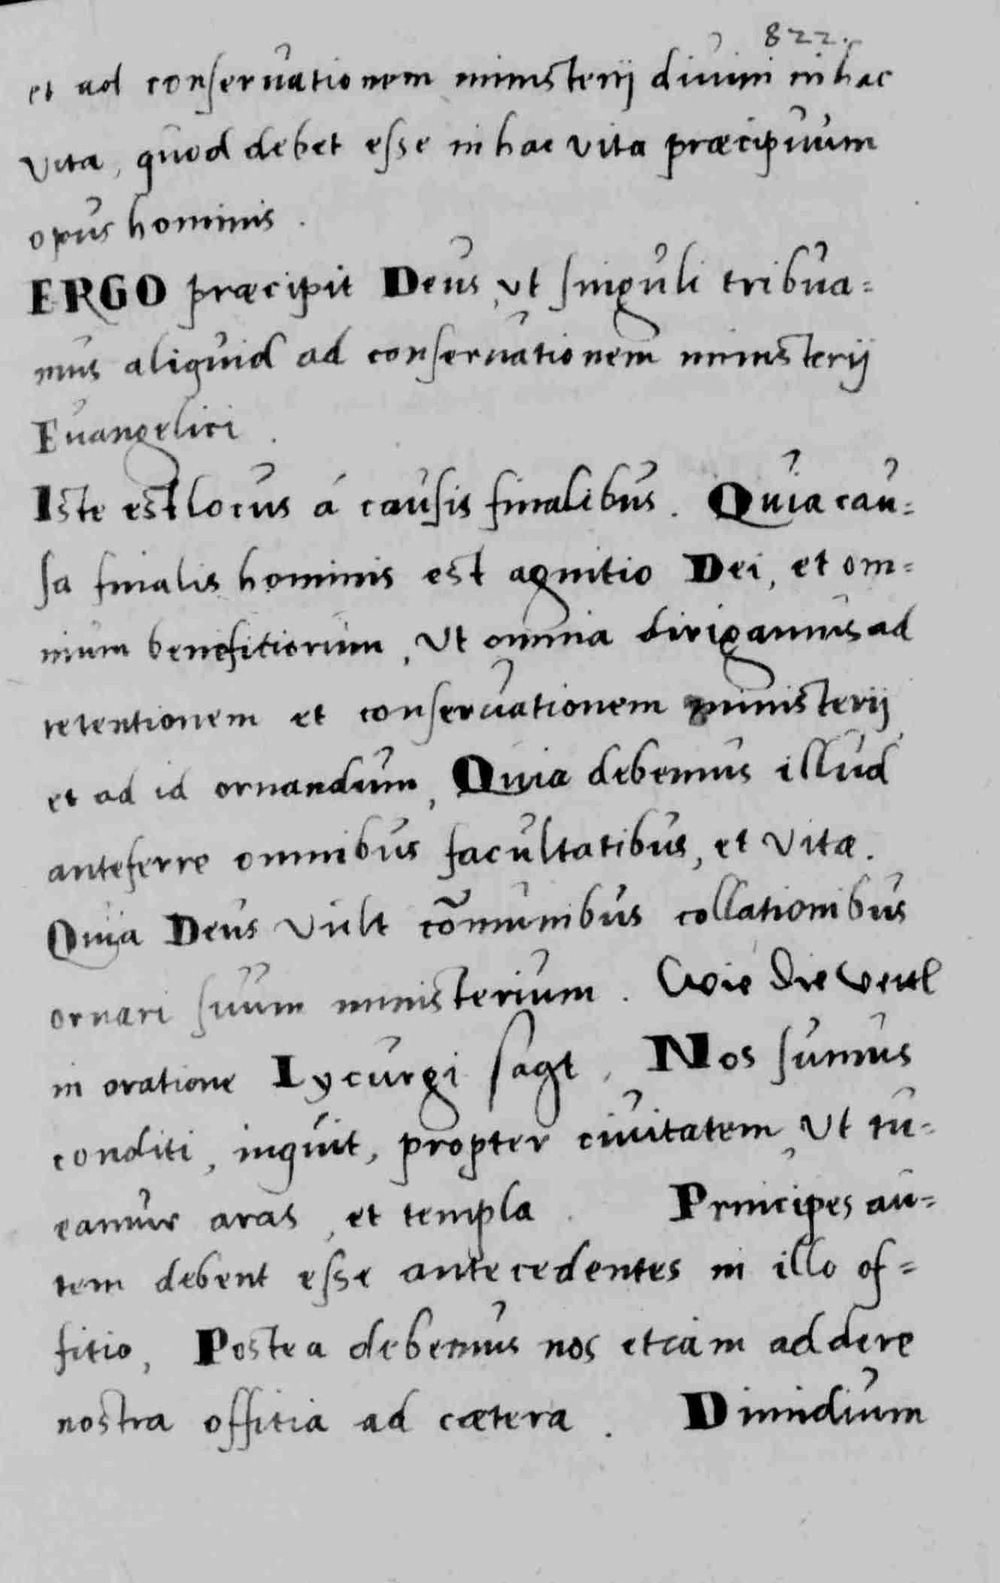 822.
et ad conseruationem ministerij diuini in hac
vita, quod debet esse in hac vita præcipuum
opus hominis.
ERGO præcipit Deus, vt singuli tribua=
mus aliquid ad conseruationem ministerij
Euangelici.
Iste est locus á causis finalibus. Quia cau=
sa finalis hominis est agnitio Dei, et om=
nium benefitiorum, Vt omnia dirigamus ad
retentionem et conseruationem ministerij,
et ad id ornandum, Quia debemus illud
anteferre omnibus facultatibus, et vitæ.
Quia Deus vult cōmunibus collationibus
ornari suum ministerium. Wie die
in oratione Lycurgi sagt, Nos sumus
conditi, inquit, propter ciuitatem, Vt tu=
eamur aras, et templa. Principes au=
tem debent esse antecedentes in illo of=
fitio, Postea debemus nos etiam addere
nostra offitia ad cætera. Dimidium